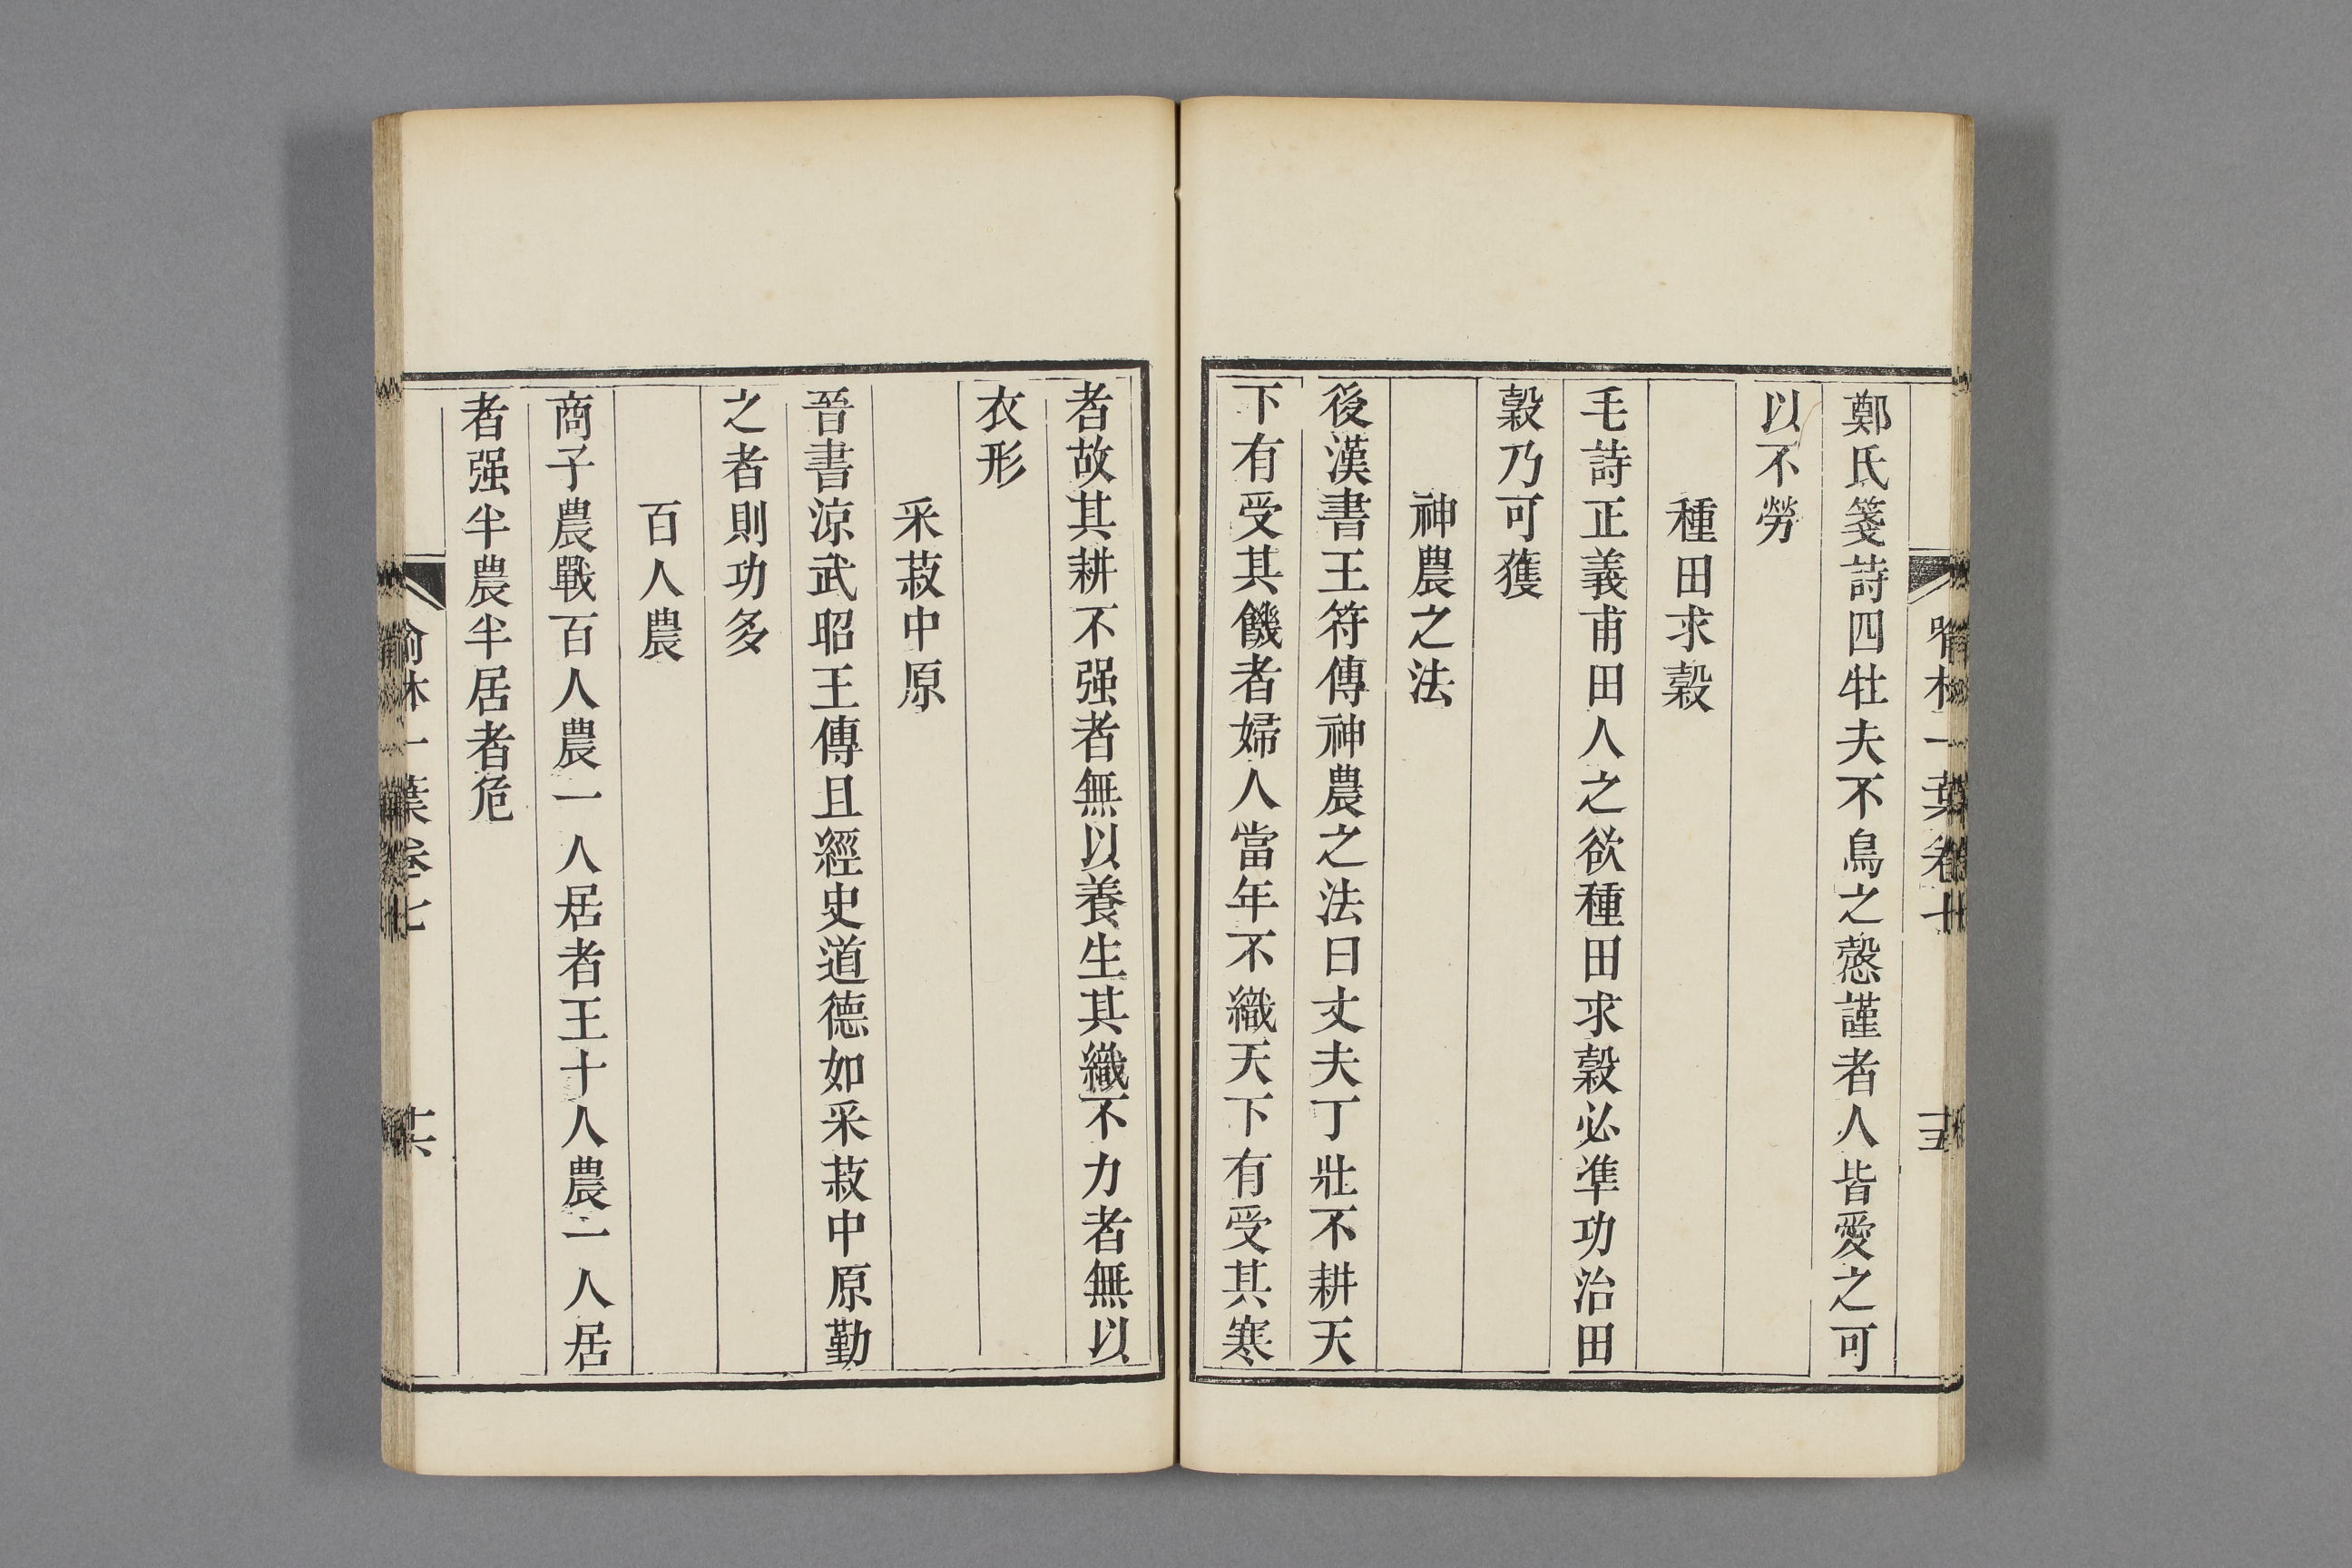 鄭氏箋詩四牡夫不鳥之慤謹者人皆愛之可
以不勞
種田求穀
毛詩正義甫田人之欲種田求穀必準功治田
穀乃可獲
神農之法
後漢書王符傳神農之法曰丈夫丁壯不耕天
下有受其饑者婦人當年不織天下有受其寒
者故其耕不强者無以養生其織不力者無以
衣形
采菽中原
晉書涼武昭王傳且經史道德如采菽中原勤
之者則功多
百人農
商子農戰百人農一人居者王十人農一人居
者强半農半居者危
喻林一葉卷七